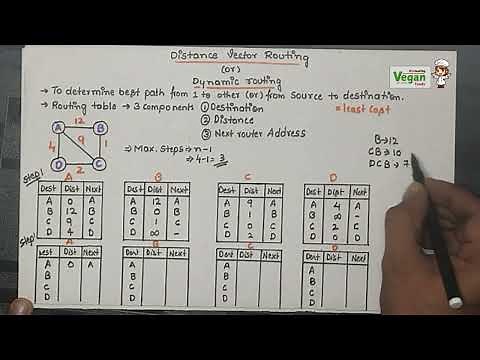 Distance Vector Routing
(or)
Dynamic routing
Vegan
→ To determine best path from 1 to other (or) from source to destination.
→ Routing table → 3 components ① Destination = least cost
② Distance
③ Next router Address
A 12 B
4 9 1
D 2 C
⇒ Max. steps ⇒ n-1
⇒ 4-1 = 3
B → 12
CB → 10
DCB → 7
Step 1
A B C D
Dest Dist Next Dest Dist Next Dest Dist Next Dest Dist Next
A 0 A A 12 A A 9 A A 4 A
B 12 B B 0 B B 1 B B ∞ -
C 9 C C 1 C C 0 C C 2 C
D 4 D D ∞ - D 2 D D 0 D
Step
A B C D
Dest Dist Next Dest Dist Next Dest Dist Next Dest Dist Next
A 0 A A A A
B B B B
C C C C
D D D D